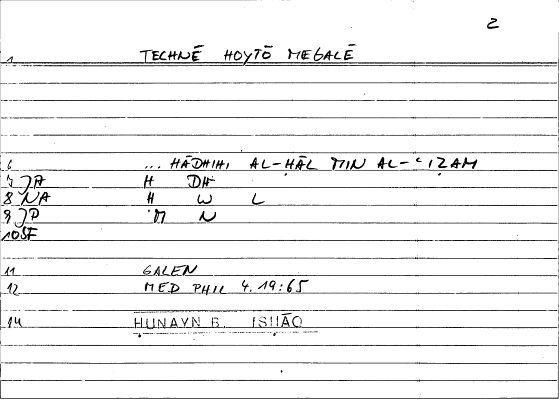 2
1 TECHNĒ HOYTŌ MEGALĒ
6 ... HĀDHIHI AL-ḤĀL MIN AL-ʿIẒAM
7 JA H DH
8 NA Ḥ W L
9 JP M N
10 SF
11 GALEN
12 MED PHIL 4.19:65
14 ḤUNAYN B. ISḤĀQ